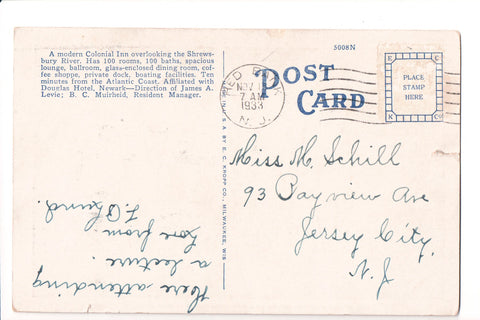 A modern Colonial Inn overlooking the Shrews-
bury River. Has 100 rooms, 100 baths, spacious
lounge, ballroom, glass-enclosed dining room, cof-
fee shoppe, private dock, boating facilities. Ten
minutes from the Atlantic Coast. Affiliated with
Douglas Hotel, Newark—Direction of James A.
Levie; B. C. Muirheid, Resident Manager.
5008N
RED BANK
NOV
7 AM
1933
N. J.
POST
CARD
E E
PLACE
STAMP
HERE
K Co
E. C. KROPP CO., MILWAUKEE, WIS.
Miss M. Schill
93 Bayview Ave
Jersey City
N. J
Here attending
a lecture.
Love from